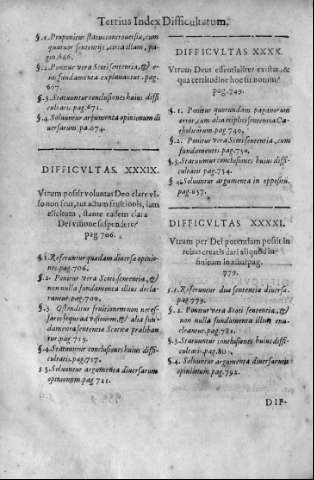 Tertius Index Difficultatum.
§.1. Proponitur status controuersiæ, cum
quatuor sententijs, circa illam, pa-
gin.646.
§.2. Ponitur vera Scoti sententia, & e-
ius fundamenta explanantur. pag.
667.
§.3. Statuuntur conclusiones huius diffi
cultatis pag. 671.
§.4. Soluuntur argumenta opinionum di
uersarum. pa.674.
DIFFICVLTAS. XXXIX.
Vtrum possit voluntas Deo clare vi-
so non frui, aut actum fruitionis, iam
elicitum, stante eadem clara
Dei visione suspendere?
pag 706.
§.1. Referuntur quædam diuersæ opinio-
nes. pag.706.
§.2. Ponitur vera Scoti sententia, &
non nulla fundamenta illius decla-
rantur. pag.709.
§.3. Ostenditur fruitionem non
&
fundamenta sententiæ Scoticæ proliban-
tur pag.713.
§.4. Statuuntur conclusiones huius diffi-
cultatis. pag.717.
§.5. Soluuntur argumenta diuersarum
opinionum. pag.721.
DIFFICVLTAS XXXX.
Vtrum Deus essentialiter existat, &
qua certitudine hoc sit notum?
pag.749.
§.1. Ponitur quorundam paganorum
error, cum alia triplici sententia Ca-
tholicorum pag.749.
§.2. Ponitur vera Scoti sententia, cum
fundamentis. pag.750.
§.3. Statuuntur conclusiones huius diffi-
cultatis pag.754.
§.4. Soluuntur argumenta in opposi
pag.657.
DIFFICVLTAS XXXXI.
Vtrum per Dei potentiam possit in
rebus creatis dari aliquod in-
finitum in actu? pag.
779.
§.1. Referuntur duæ sententiæ diuersæ.
pag.779.
§.2. Ponitur vera Scoti sententia, &
non nulla fundamenta illius enu-
cleantur. pag.781.
§.3. Statuuntur conclusiones huius diffi-
cultatis. pag.
§.4. Soluuntur argumenta diuersarum
opinionum. pag.792.
DIF-